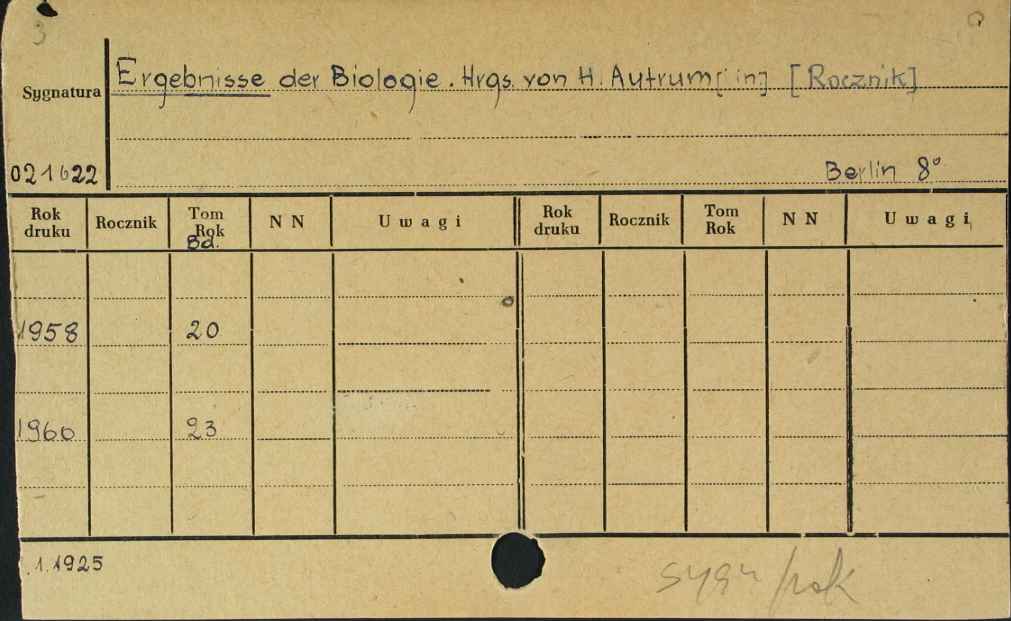 3
Ergebnisse der Biologie. Hrgs. von H. Autrum [in] [Rocznik]
Sygnatura
021622
Berlin 8°
Rok druku Rocznik Tom Rok Bd. N N Uwagi Rok druku Rocznik Tom Rok N N Uwagi
1958 20
1960 23
.1.1925
sygn/rok